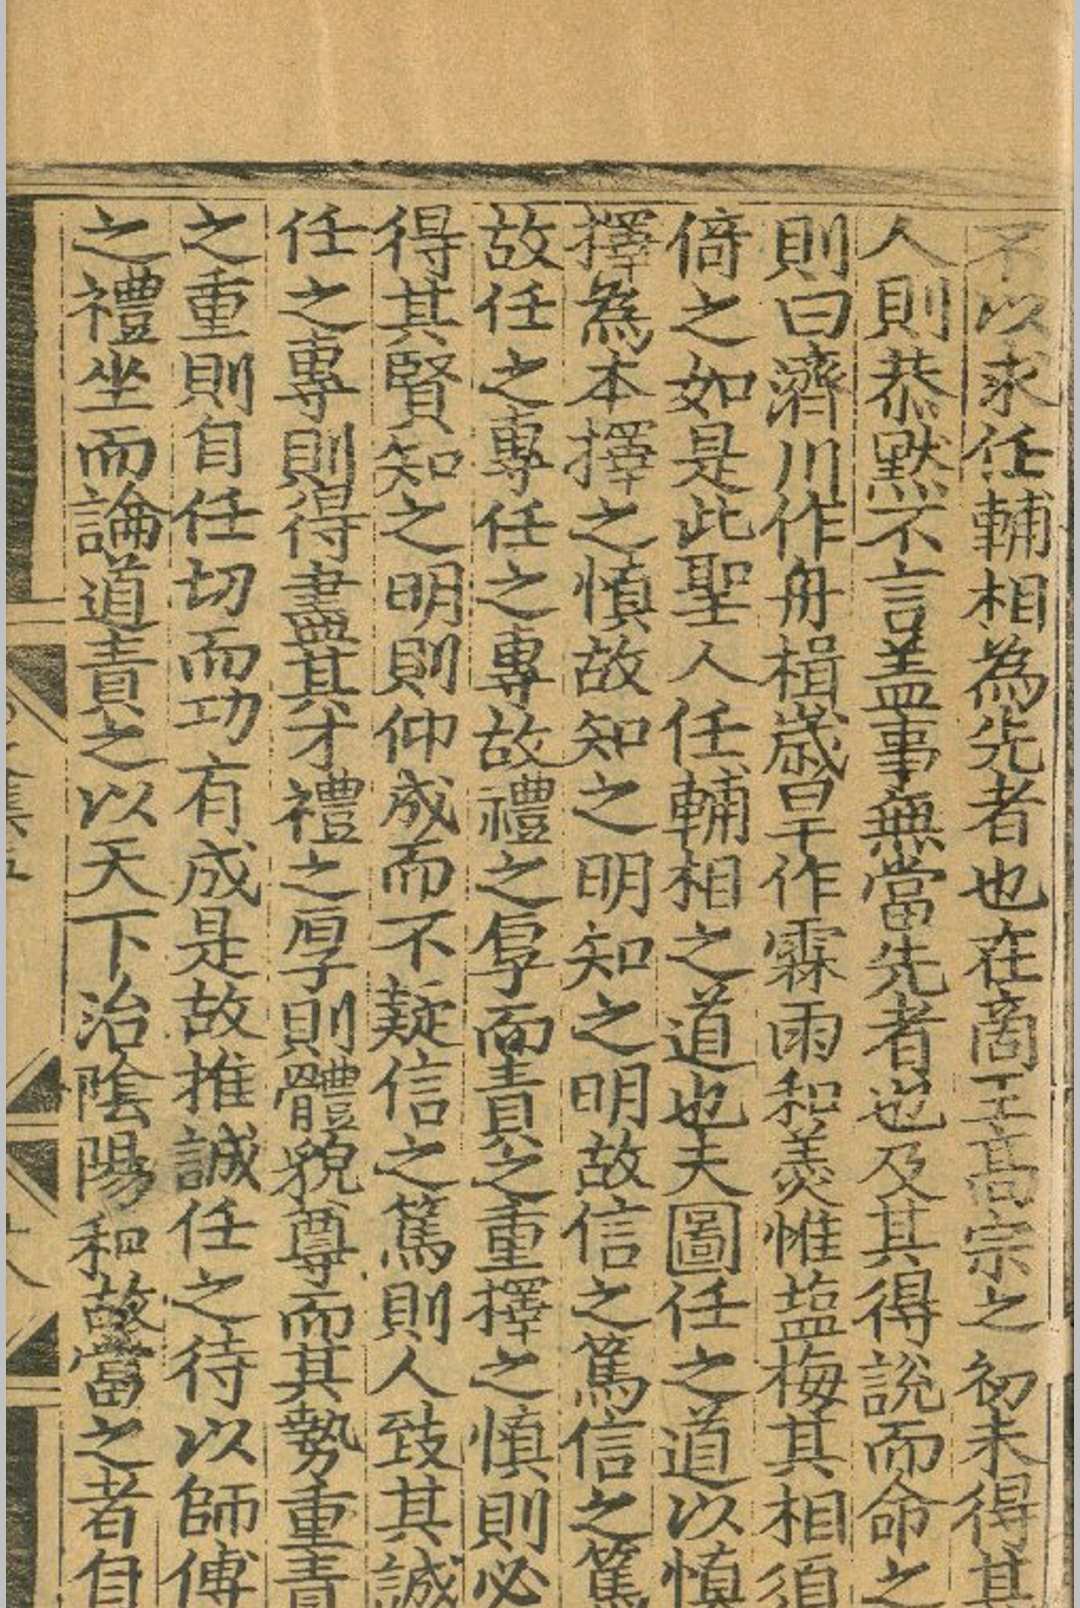 不以求任輔相為先者也在商王高宗之初未得其
人則恭默不言盖事無當先者也及其得說而命之
則曰濟川作舟楫歲旱作霖雨和羹惟塩梅其相須
倚之如是此聖人任輔相之道也夫圖任之道以慎
擇為本擇之慎故知之明知之明故信之篤信之篤
故任之專任之專故禮之厚而責之重擇之慎則必
得其賢知之明則仰成而不疑信之篤則人致其誠
任之專則得盡其才禮之厚則體貌尊而其勢重責
之重則自任切而功有成是故推誠任之待以師傅
之禮坐而論道責之以天下治陰陽和故當之者自